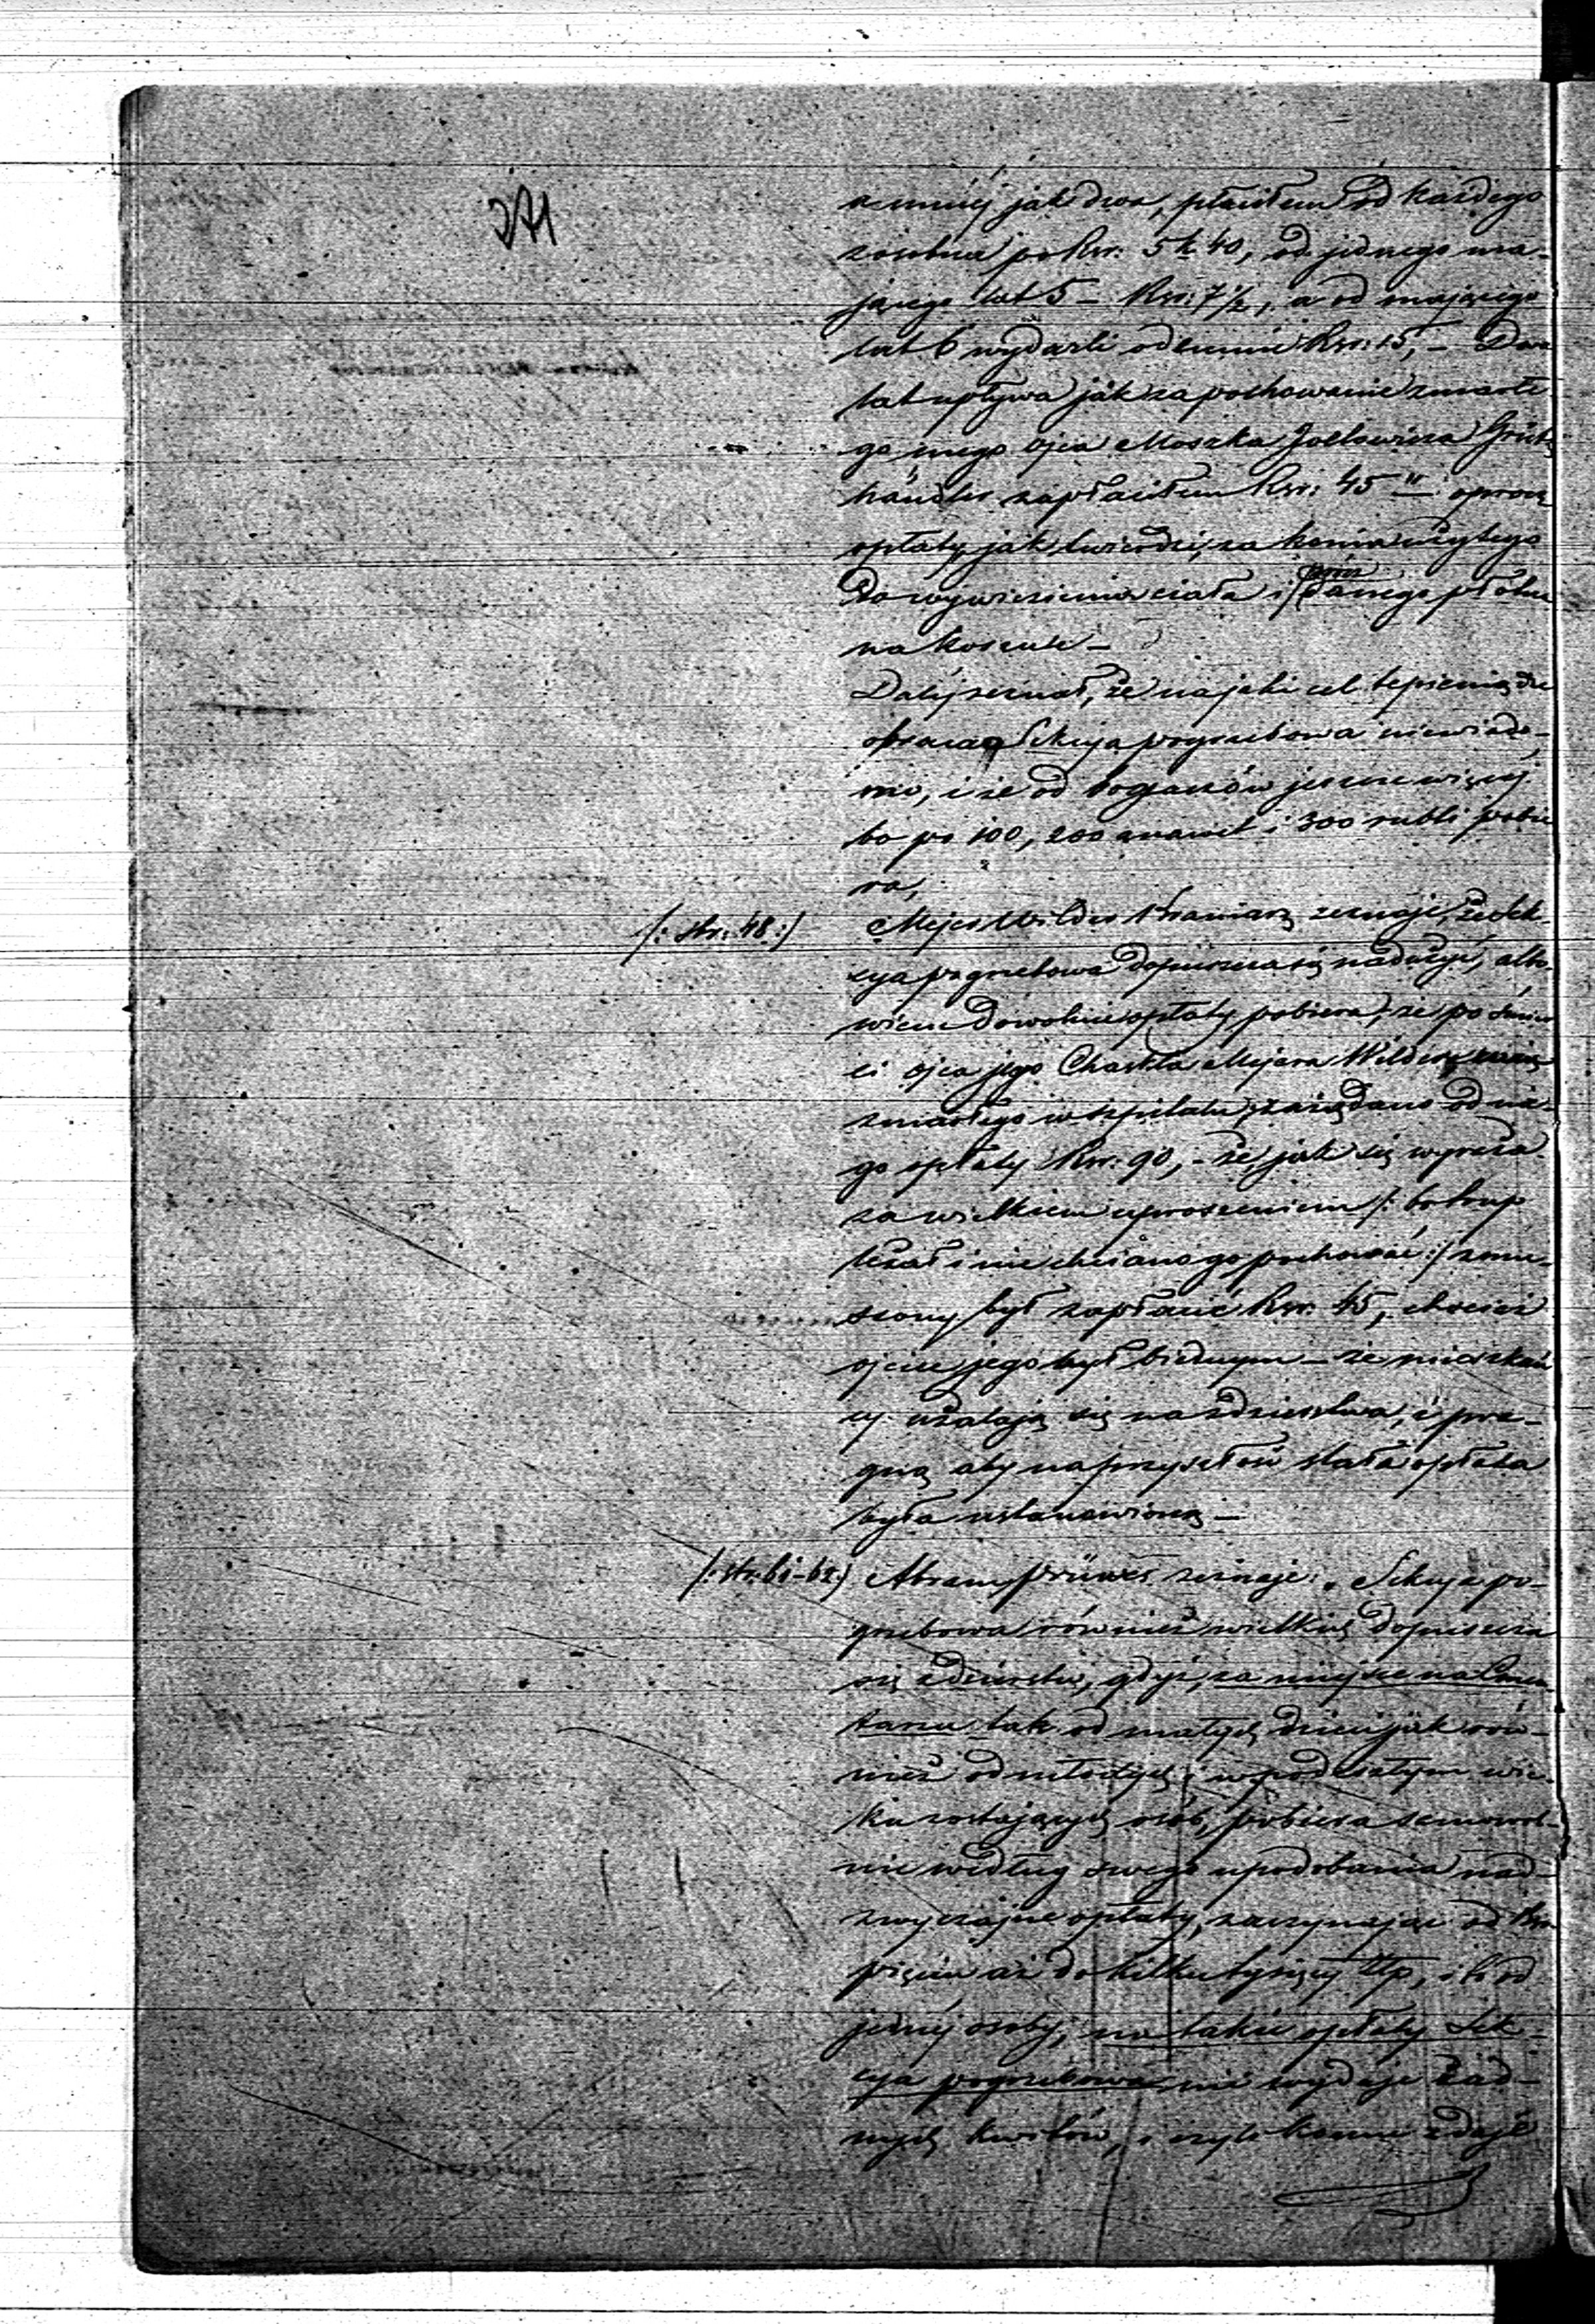 271
a mniéj jak dwa, płaciłem od każdego
zosobna po Rsr: 5 k 40, od jednego ma-
jącego lat 5 – Rsr: 7½, a od mającego
lat 6 wydarli odemnie Rsr: 15, – Dwa
lat upływa jak za pochowanie zmarłe-
go mego ojca Moszka Joelowicza
händler zapłaciłem Rsr: 45 oprocz
opłaty, jak twierdzi, za konia użytego
do wywiezienia ciała i danego płótna
na koszule –
Daléj zeznał, że na jaki cel te pieniądze
obraca Sekcya pogrzebowa niewiado-
mo, i że od bogaczów jeszcze więcej
bo po 100, 200 a nawet i 300 rubli pobie
ra,
(: str: 48 :) Mejer Wilder Kramarz zeznaje, że Sek-
cya pogrzebowa dopuszcza się nadużyć, albo-
wiem dowolnie opłaty pobiera, że po śmier
ci ojca jego Chaskla Mejera Wildera
zmarłego w szpitalu, zażądano od nie-
go opłaty Rsr: 90, – że, jak się wyraża
za wielkiem uproszeniem (: bo trup
leżał i nie chciano go pochować :) zmu-
szony był zapłacić Rsr: 45, chociaż
ojciec jego był biednym – że mieszkań
cy użalają się na zdzierstwa, i pra-
gną aby na przyszłość stała opłata
była ustanowioną –
(: str: 61–62 :) Abram zeznaje: „Sekcya po-
grzebowa również wielkich dopuszcza
się zdzierstw, gdyż za miejsce na Cmen
tarzu tak od małych dzieci jak rów-
nież od młodych i w podeszłym wie-
ku zostających osób, pobiera samowol-
nie według swego upodobania nad-
zwyczajne opłaty, zaczynając od Rsr
pięciu aż do kilku tysięcy Złp, i to od
jednéj osoby, na takie opłaty Sek-
cya pogrzebowa nie wydaje żad-
nych kwitów, i czy to komu zdaje